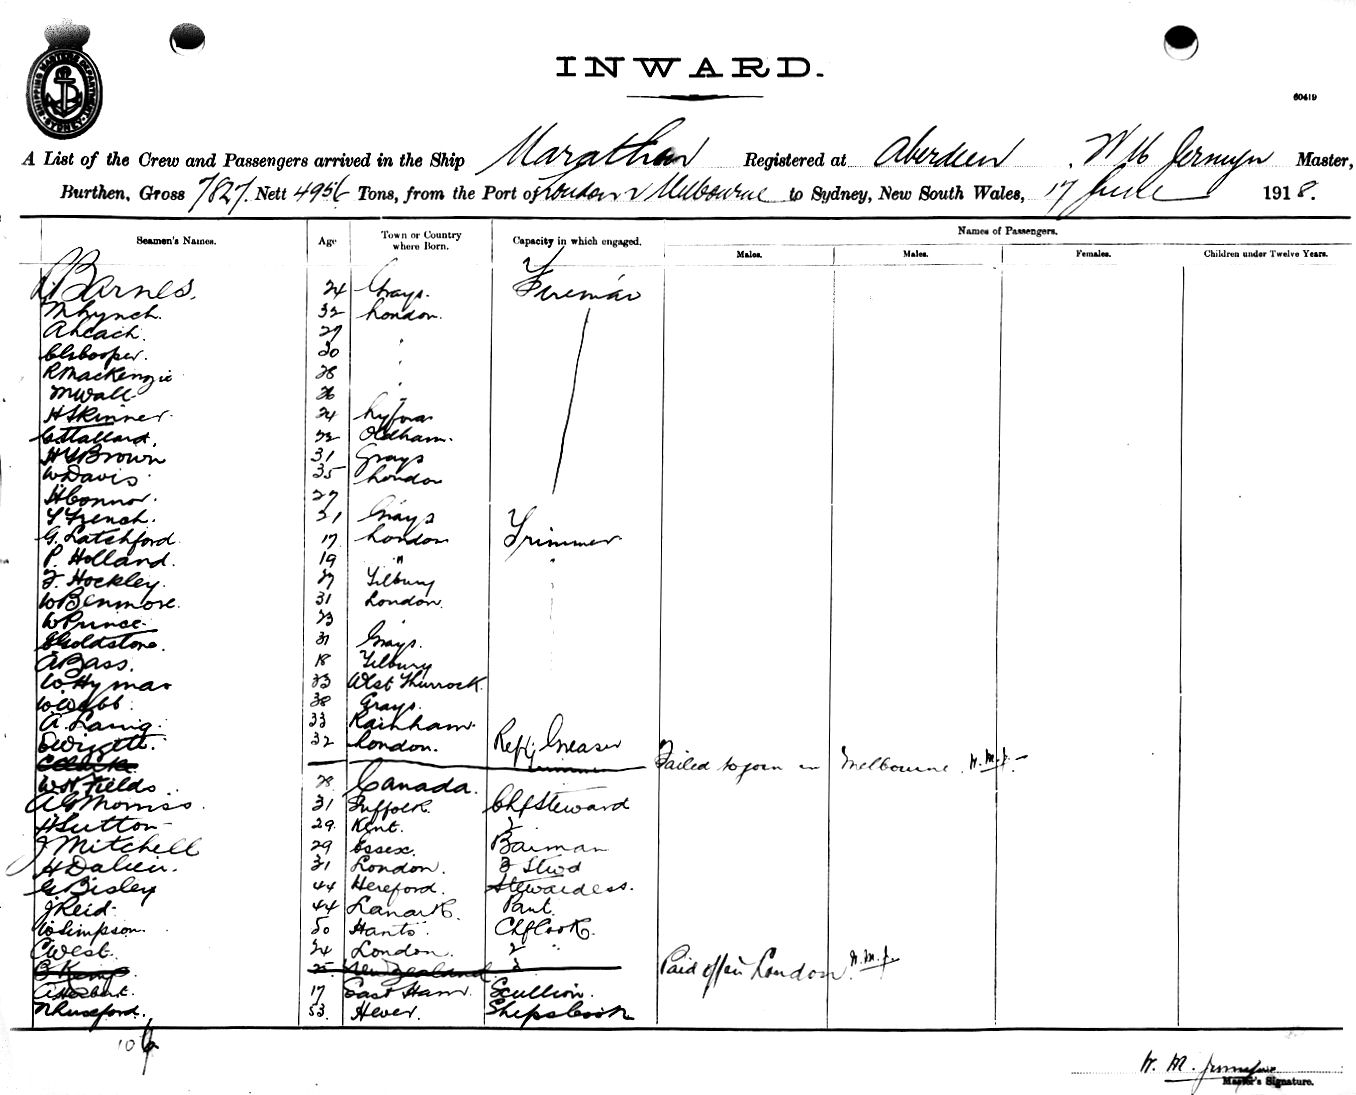 SHIPPING MASTERS DEPARTMENT SYDNEY
INWARD.
60419
A List of the Crew and Passengers arrived in the Ship Marathon Registered at Aberdeen, W M Jermyn Master,
Burthen, Gross 7827. Nett 4956 Tons, from the Port of London & Melbourne to Sydney, New South Wales, 17 June 1918.
Seamen's Names. Age Town or Country where Born. Capacity in which engaged. Names of Passengers.
Males. Males. Females. Children under Twelve Years.
Barnes. 24 Grays. Fireman
M Lynch. 32 London.
A Leach. 27 "
Cooper. 30 "
R MacKenzie 28 "
M Wall 26 "
H Skinner. 24
C Stallard. 22 Oldham.
H Brown 31 Grays
W Davis 35 London
H Connor. 27
French. 21 Grays
G. Latchford. 17 London Trimmer
P. Holland. 19 " "
F. Hockley. 27 Tilbury
W Benmore. 31 London.
W Prince. 23
Goldstone. 31 Grays.
A Bass. 18 Tilbury
W. Hymas 23 West Thurrock.
W Webb. 38 Grays.
A. Laing. 33 Rainham.
32 London. Refg. Greaser
Trimmer Failed to join in Melbourne. W.M.J.
W H Fields. 28 Canada.
A G Morriss. 31 Suffolk. Chf Steward
H Sutton 29. Kent. 2
J Mitchell 29 Essex. Barman
H 31 London. 3 Stwd
G Bisley 44 Hereford. Stewardess.
J Reid. 44 Lanark. Pant.
W Simpson. 50 Hants Chf Cook.
C West. 24 London. 2 "
25 New Zealand. 3 Paid off in London. W.M.J.
A Herbert. 17 East Ham. Scullion.
53. Hever. Ships Cook
106
W. M. Jermyn
Master's Signature.